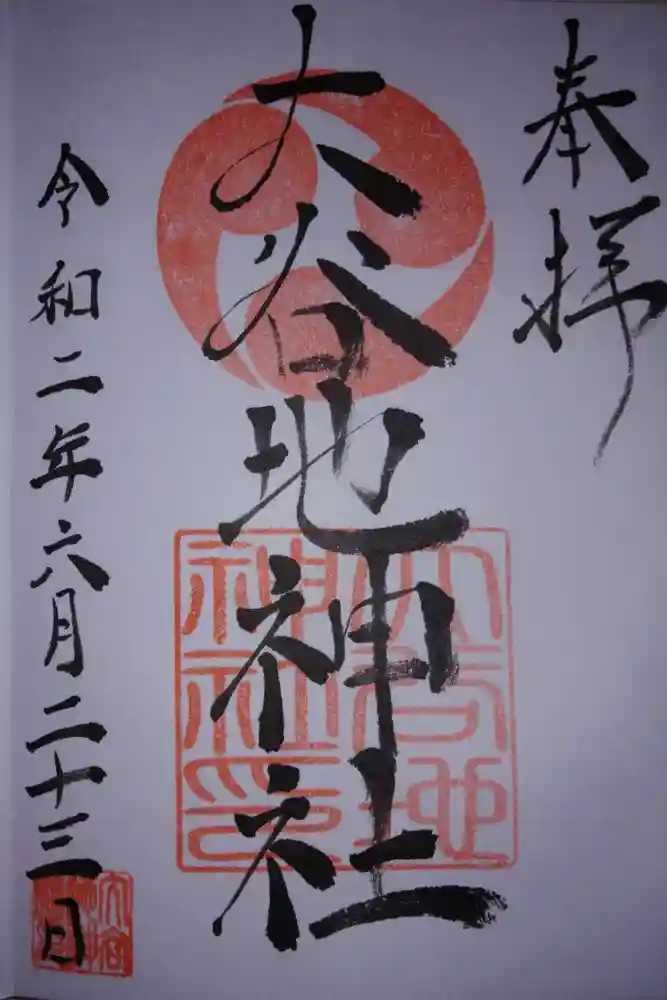 奉拝
大谷地神社
大谷地
神社印
令和二年六月二十三日